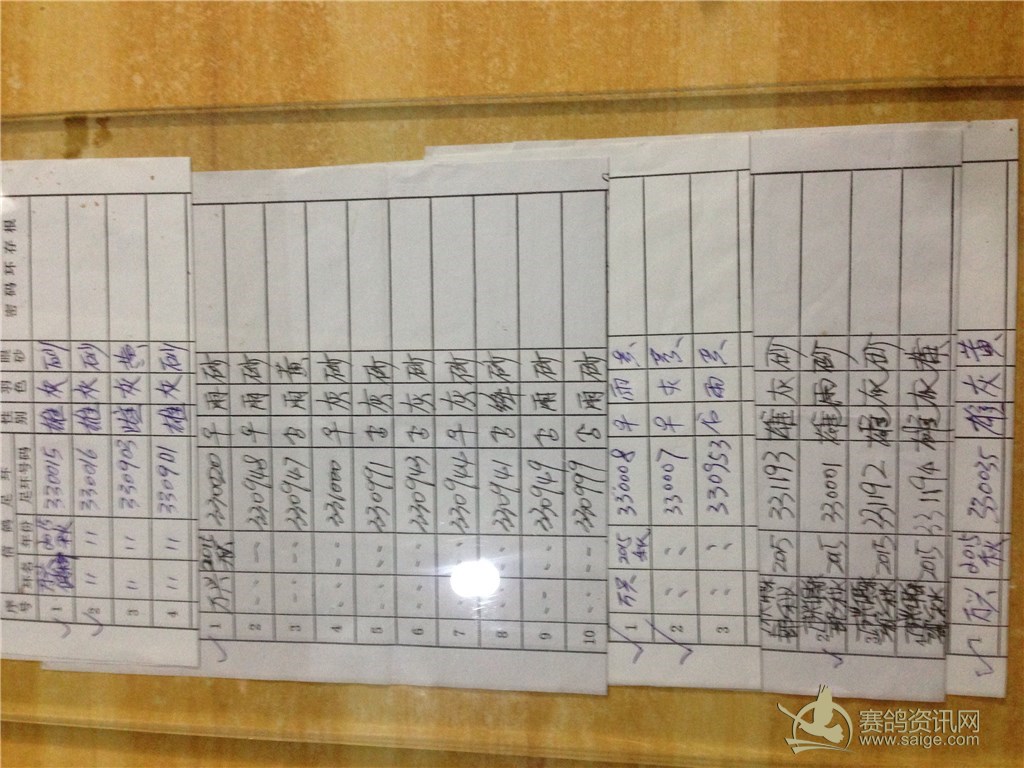 序号 环名 年份 足环号码 性别 羽色 眼砂 密码环存根
1 2015秋 330015 雄 灰 砂
2 〃 〃 330016 雄 灰 砂
3 〃 〃 330903 雄 灰 黄
4 〃 〃 330901 雄 灰 砂
1 万兴 2015秋 雨 砂
2 〃 〃 330948 雨 砂
3 〃 〃 330947 雨 黄
4 〃 〃 331000 灰 砂
5 〃 〃 330991 灰 砂
6 〃 〃 330943 灰 砂
7 〃 〃 330944 灰 砂
8 〃 〃 330941 绛 砂
9 〃 〃 330949 雨 砂
10 〃 〃 330999 雨 砂
1 万兴 2015秋 330008 雨
2 〃 〃 330007 灰
3 〃 〃 330953 雨
1 2015 331193 雄 灰 砂
2 2015 330001 雄 雨 砂
3 2015 331192 雄 灰 砂
2015 331194 雄 灰
万兴 2015秋 330035 雄 灰 黄
赛鸽资讯网
www.saige.com